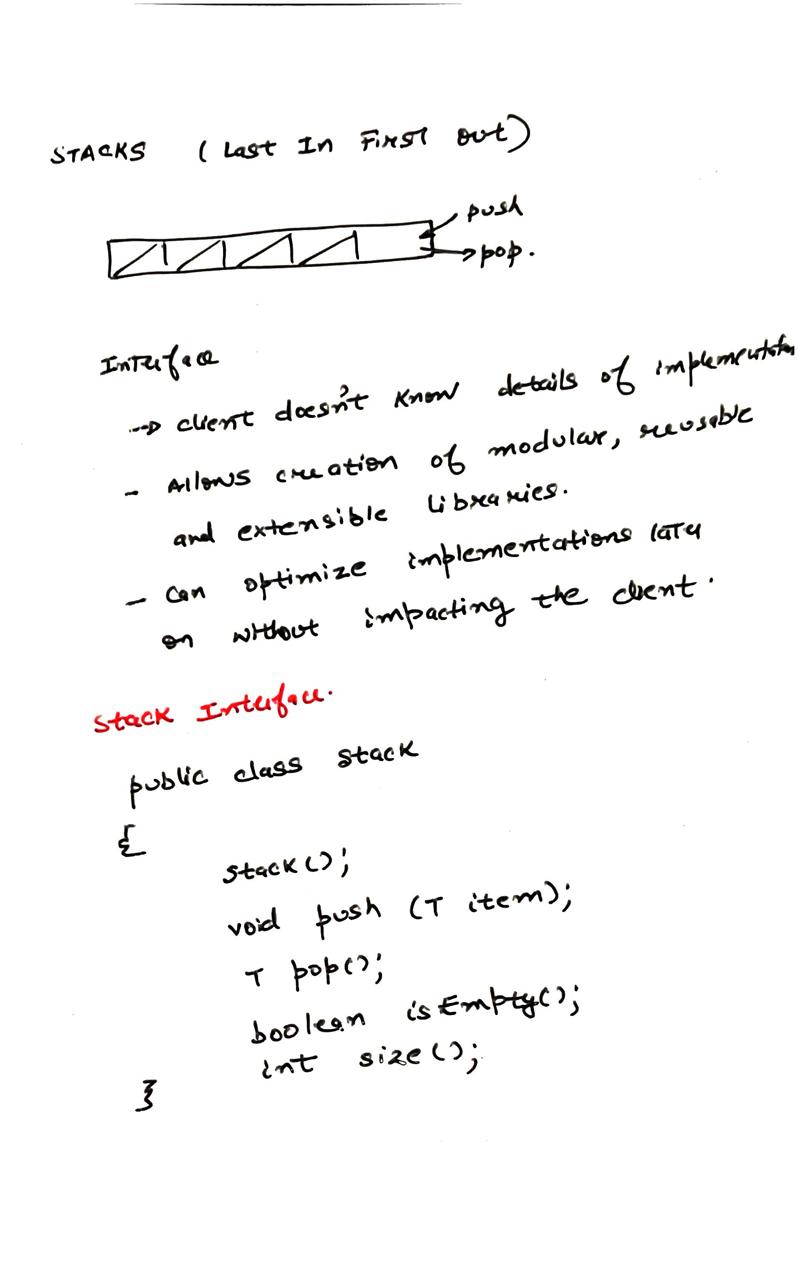 STACKS (Last In First out)
push
pop.
Interface
client doesn't know details of implementation
- Allows creation of modular, reusable
and extensible libraries.
- Can optimize implementations later
on without impacting the client.
Stack Interface.
public class stack
{
stack();
void push (T item);
T pop();
boolean isEmpty();
int size();
}